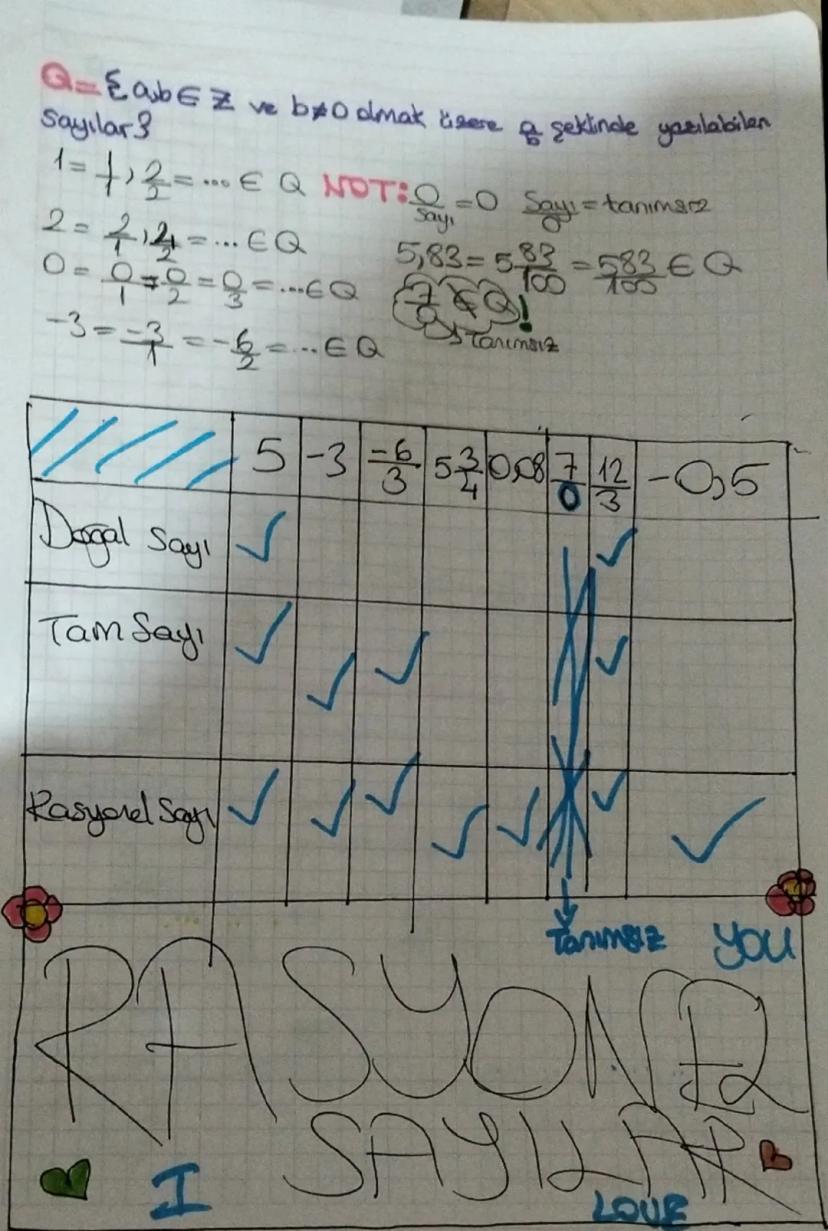 Q={a,b∈Z ve b≠0 olmak üzere a/b şeklinde yazılabilen
sayılar}
1=1/1,2/2=...∈Q NOT: 0/sayı=0 Sayı/0=tanımsız
2=2/1,4/2=...∈Q 5,83=5 83/100=583/100∈Q
0=0/1=0/2=0/3=...∈Q 7/0∉Q!
→Tanımsız
-3=-3/1=-6/2=...∈Q
5 -3 -6/3 5 3/4 0,08 7/0 12/3 -0,5
Doğal Sayı ✓ ✓
Tam Sayı ✓ ✓ ✓ ✓
Rasyonel Sayı ✓ ✓ ✓ ✓ ✓ ✓ ✓
Tanımsız YOU
RASYONEL
SAYILAR
I LOVE